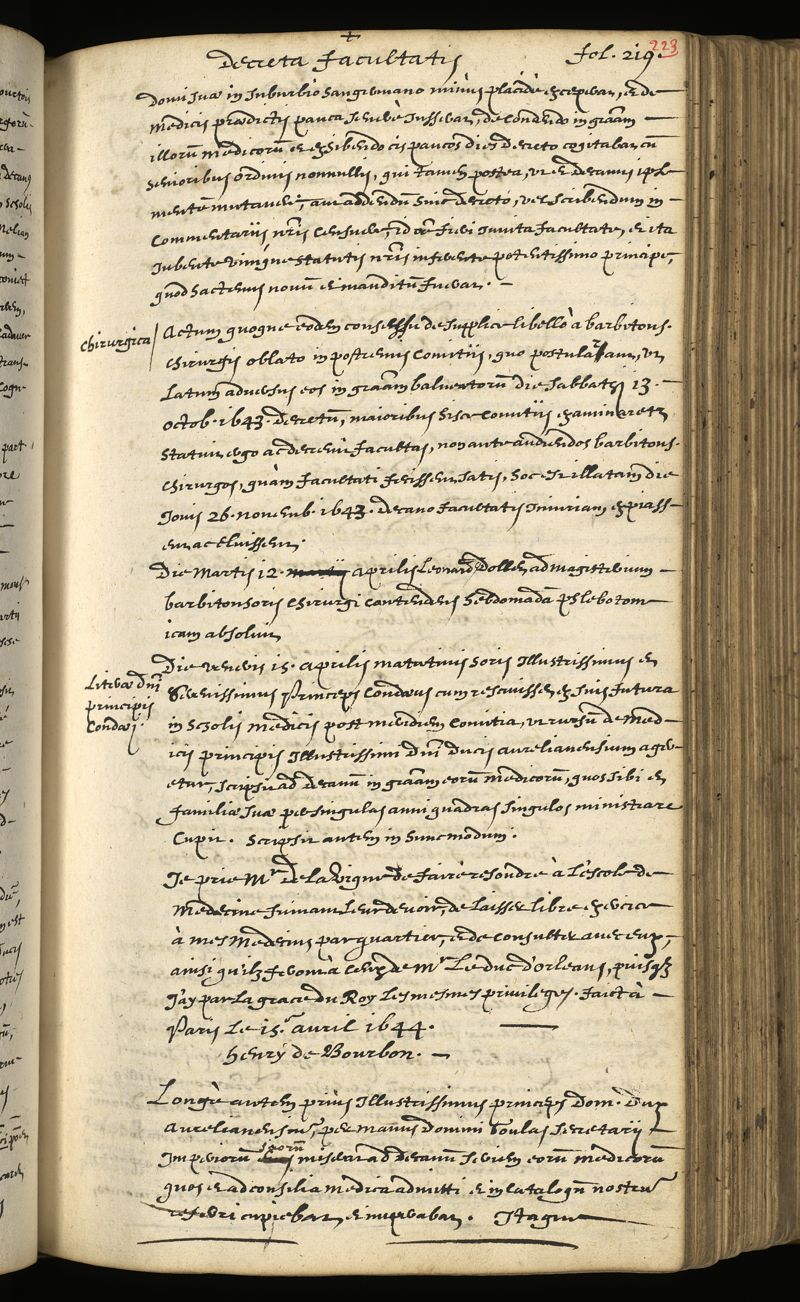 +
Decreta Facultatis fol. 219. 223
domi suæ in suburbio Sangermano minùs placidè exceperat, et de
medicis prædictis pauca serenè iusserat, de condendo in grãam
illorũ medicorũ et exhibendo eis paucos dies decreto cogitabat, cũ
senioribus ordinis nonnullis, qui tamen postea, ut et decanus ipse
mentẽ mutaverẽ, aut addendum huic decreto, vel scribendum in
Commentariis nr̃is censuere, id oẽ fieri invita facultate, et ita
jubente vimque statutis nr̃is inferente potentissimo principe,
quod hactenus novũ et inauditũ fuerat.
Chirurgica
Actum quoque eodem consessu de supplice libello à barbitons.
Chirurgis oblato in postremis Comitiis, quo postularant, ut
latum adversus eos in grãam balneatorũ die sabbathi 13.
octob. 1643. decretũ, maioribus hisce Comitiis examinaretr
statuit ergo ac decrevit facultas, non ante audiendos barbitons.
Chirurgos, quàm facultati fecissent satis, hoc est illatam die
Jovis 26. novemb. 1643. decano facultatis injuriam expiass-
ent ac eluissent.
Die Martis 12. aprilis Leonard Dollet ad magisterium
barbitonsoris Chirurgi contendens hebdomadã phlebotom
icam absolvit
Literæ dñi
principis
Condæi.
Die veneris 15. aprilis matutinis horis Illustrissimus et
Serenissimus Princeps Condæus cum rescivisset ex suis futura
in scholis medicis post meridiem Comitia, ut rursũ de med-
icis principis Illustrissimi dñi ducis aurelianensium ager-
etur, scripsit ad decanũ in grãam eorũ medicorũ, quos sibi et
familiæ suæ per singulas anni quadras singulos ministrare
Cupit. Scripsit autem in hunc modum.
Je prie Mr De la Vigne de faire resoudre à L'escole de
Medecine suivant leur devoir, de laisser libre exercice
à mes Medecins par quartier, et de consulter avec eux,
ainsi qu'ilz feront à ceux de Mr Le duc d'orleans, puisq3
J'ay par la grace du Roy les mesmes privileges. faict à
Paris le 15. avril 1644.
henry de Bourbon.
Longè autem priùs Illustrissimus princeps Dom. Dux
Aurelianensiũ, per manus domini Goulas Secretarii
Imperiorũ suorũ miserat ad decanũ seriem eorũ medicorũ
quos et ad consilia medica admitti et in catalogũ nostrũ
referri cupiebat et imperabat. Itaque